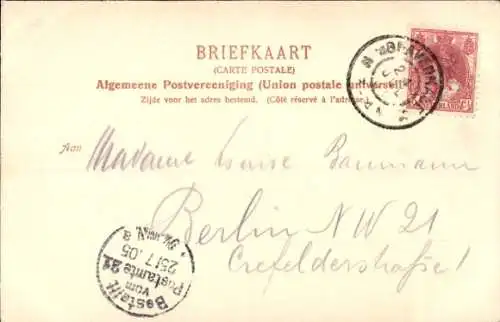 BRIEFKAART
(CARTE POSTALE)
Algemeene Postvereeniging (Union postale universelle)
Zijde voor het adres bestemd. (Côté réservé à l'adresse)
Aan Madame Louise Baumann
Berlin NW 21
Crefelderstraße 1
Bestellt
vom
Postamte 21
25/7.05